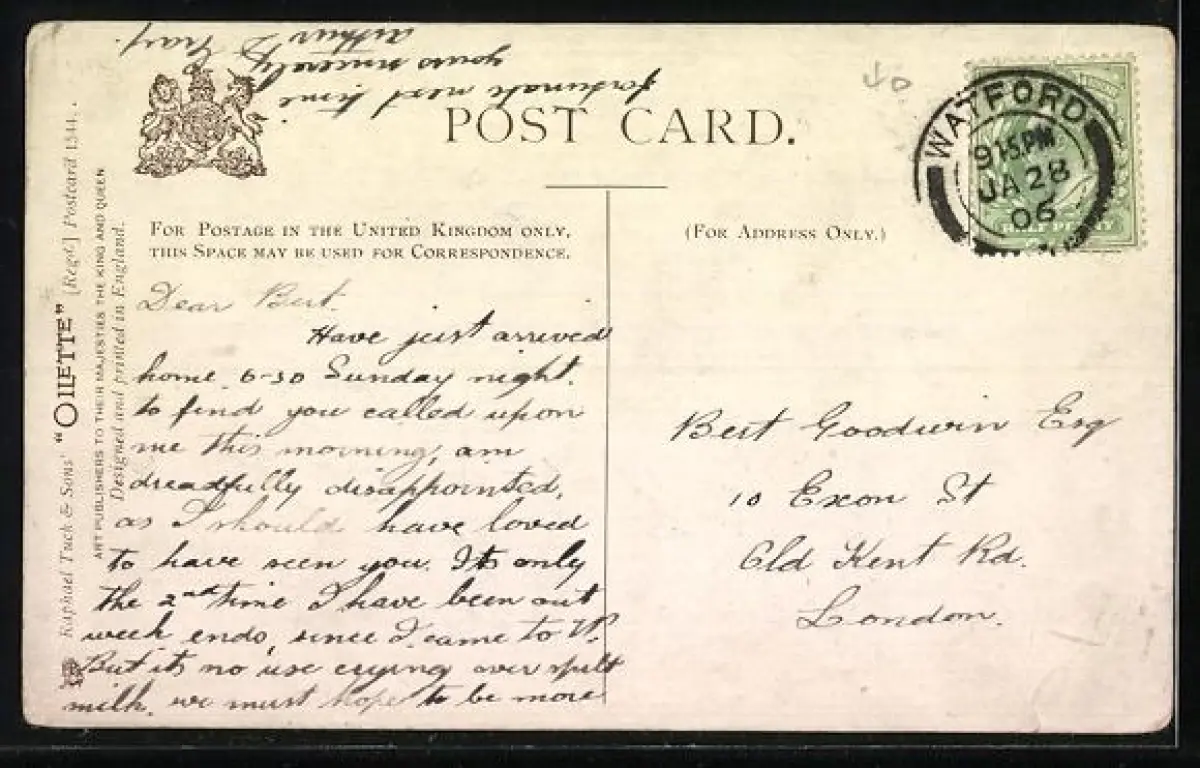 POST CARD.
FOR POSTAGE IN THE UNITED KINGDOM ONLY,
THIS SPACE MAY BE USED FOR CORRESPONDENCE.
(FOR ADDRESS ONLY.)
WATFORD
9 15 PM
JA 28
06
HALF PENNY
Raphael Tuck & Sons' "OILETTE" [Regd.] Postcard 1544.
ART PUBLISHERS TO THEIR MAJESTIES THE KING AND QUEEN
Designed and printed in England.
Dear Bert.
Have just arrived
home 6-30 Sunday night.
to find you called upon
me this morning, am
dreadfully disappointed,
as I should have loved
to have seen you. Its only
the 2nd time I have been out
week ends, since I came to W.
But its no use crying over spilt
milk. we must hope to be more
fortunate next time
yours sincerely
Arthur Gray.
Bert Goodwin Esq
10 Exon St
Old Kent Rd.
London.